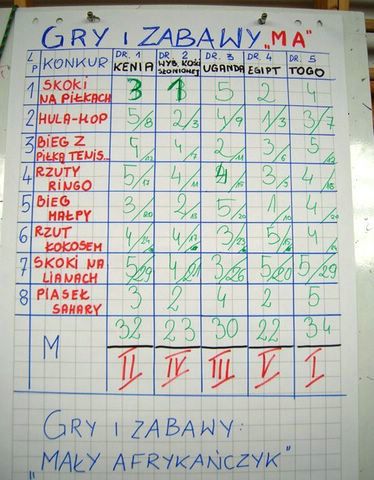 GRY I ZABAWY "MA"
L P KONKUR DR. 1 KENIA DR. 2 WYB. KOŚCI SŁONIOWEJ DR. 3 UGANDA DR. 4 EGIPT DR. 5 TOGO
1 SKOKI NA PIŁKACH 3 1 5 2 4
2 HULA-HOP 5/8 2/3 4/9 1/3 3/7
3 BIEG Z PIŁKĄ TENIS... 4/12 4/7 2/11 3/6 5/12
4 RZUTY RINGO 5/17 4/11 4/15 3/9 4/16
5 BIEG MAŁPY 3/20 2/13 5/20 1/10 4/20
6 RZUT KOKOSEM 4/24 4/17 3/23 5/15 4
7 SKOKI NA LIANACH 5/29 4/21 3/26 5/20 5/29
8 PIASEK SAHARY 3 2 4 2 5
M 32 23 30 22 34
II IV III V I
GRY I ZABAWY:
"MAŁY AFRYKAŃCZYK"